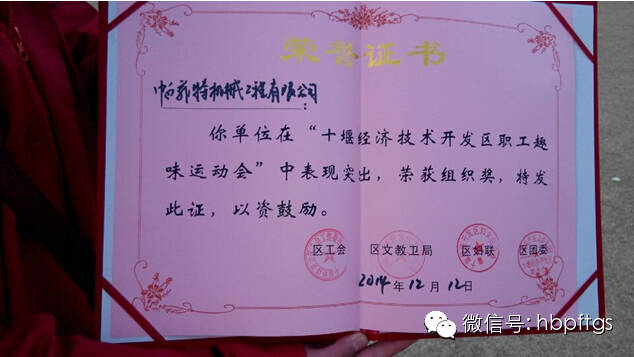 荣誉证书
帕菲特机械工程有限公司：
你单位在“十堰经济技术开发区职工趣
味运动会”中表现突出，荣获组织奖，特发
此证，以资鼓励。
区工会 区文教卫局 区妇联 区团委
2014年12月12日
微信号: hbpftgs